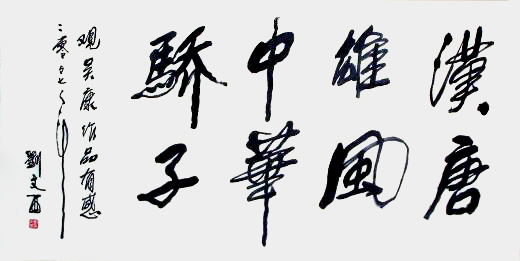 漢唐
雄風
中華
驕子
观吴康作品有感
二零一七年
劉文西